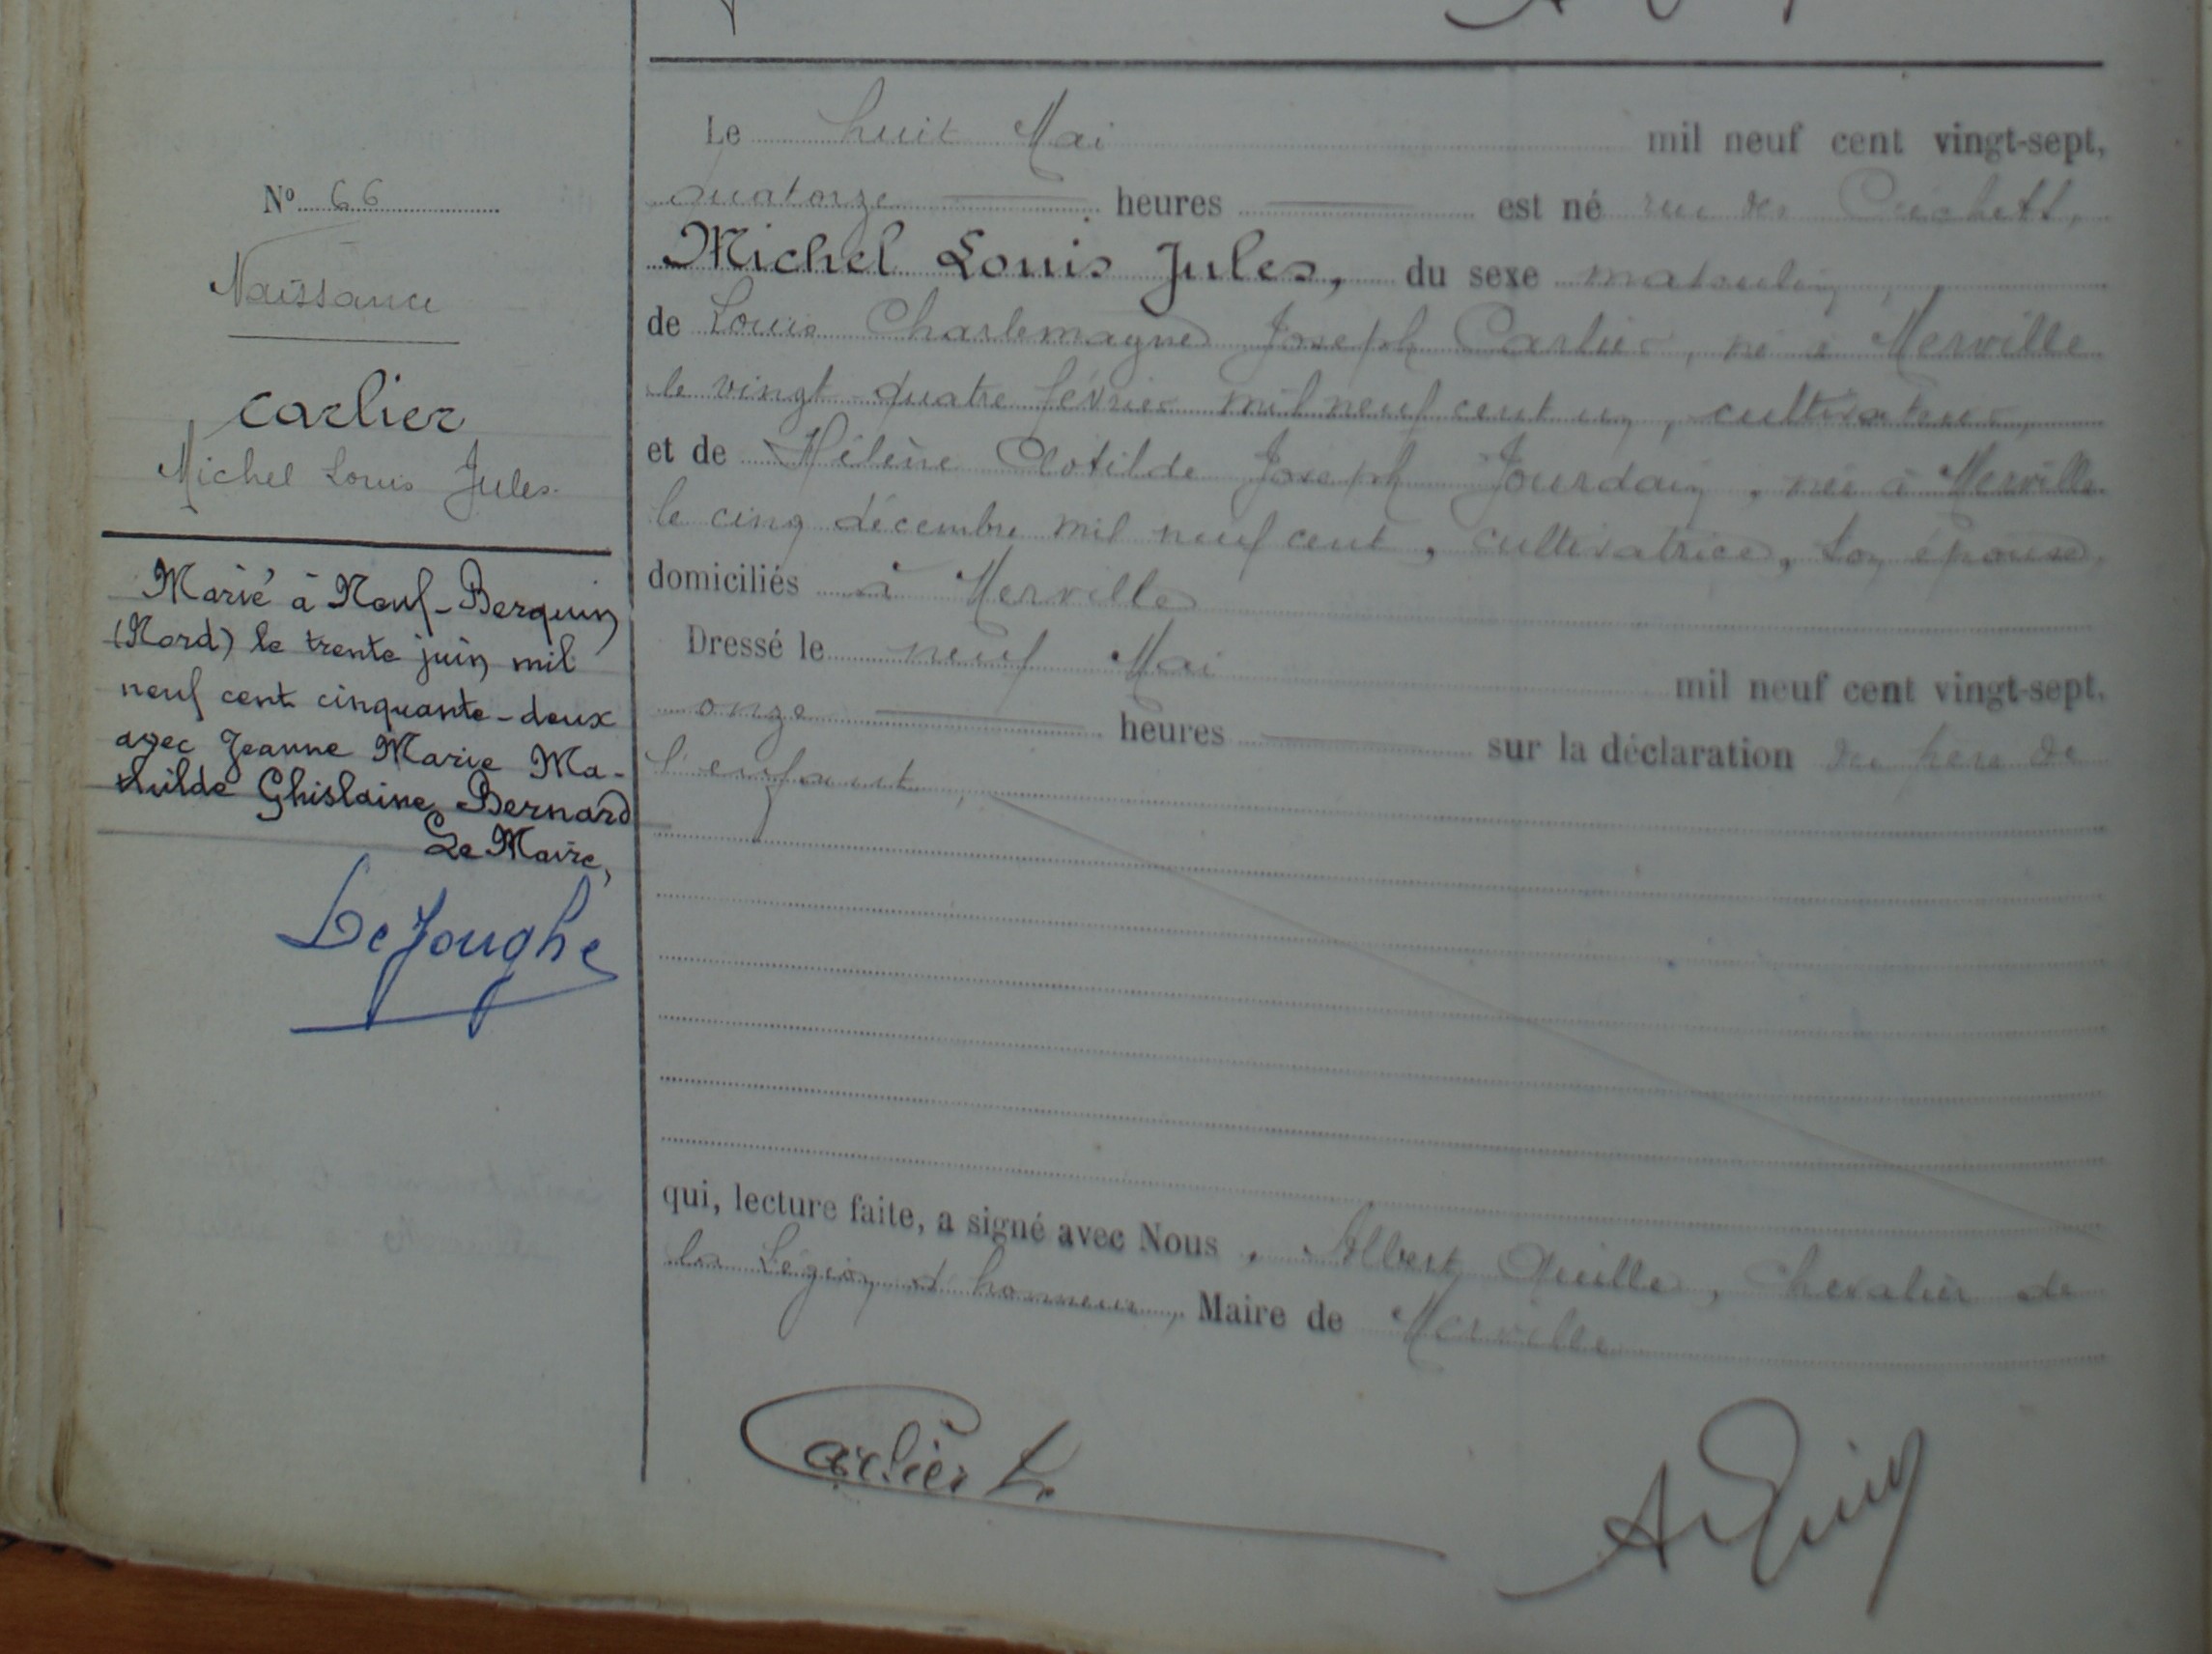 N° 66
Naissance
Carlier
Michel Louis Jules.
Marié à Neuf-Berquin
(Nord) le trente juin mil
neuf cent cinquante-deux
avec Jeanne Marie Ma-
thilde Ghislaine Bernard
Le Maire,
Le huit Mai mil neuf cent vingt-sept,
quatorze heures est né rue des
Michel Louis Jules, du sexe masculin,
de Louis Charlemagne Joseph Carlier, né à Merville
le vingt-quatre février mil neuf cent un, cultivateur,
et de Hélène Clotilde Joseph Jourdain, née à Merville
le cinq décembre mil neuf cent, cultivatrice, son épouse,
domiciliés à Merville
Dressé le neuf Mai mil neuf cent vingt-sept,
onze heures sur la déclaration du père de
l'enfant,
qui, lecture faite, a signé avec Nous, Albert Quille, Chevalier de
la Légion d'honneur, Maire de Merville
Carlier L.